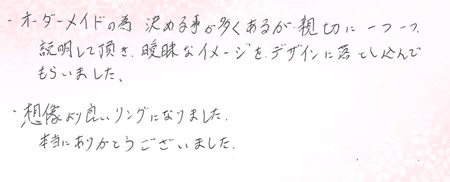 ・オーダーメイドの為 決める事が多くあるが 親切に一つ一つ
説明して頂き、曖昧なイメージを、デザインに落とし込んで
もらいました。
・想像より良いリングになりました。
本当にありがとうございました。